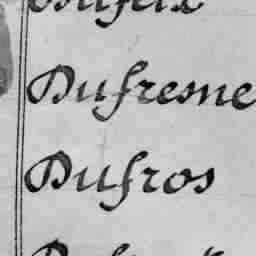 Dufresne
Dufros